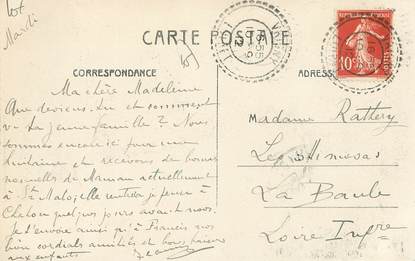 lot
Mardi
CARTE POSTALE
CORRESPONDANCE
ADRESSE
10c
Ma chère Madeleine
Que deviens-tu et comment
va la jeune famille? Nous
sommes encore ici pour une
huitaine et recevons de bonnes
nouvelles de Maman actuellement
à St Malo, elle rentre je pense à
Chatou quelques jours avant nous.
Je t'envoie ainsi qu'à Francis nos
bien cordiales amitiés et bons baisers
aux enfants
Madame Rattery
Les Mimosas
La Baule
Loire Infre